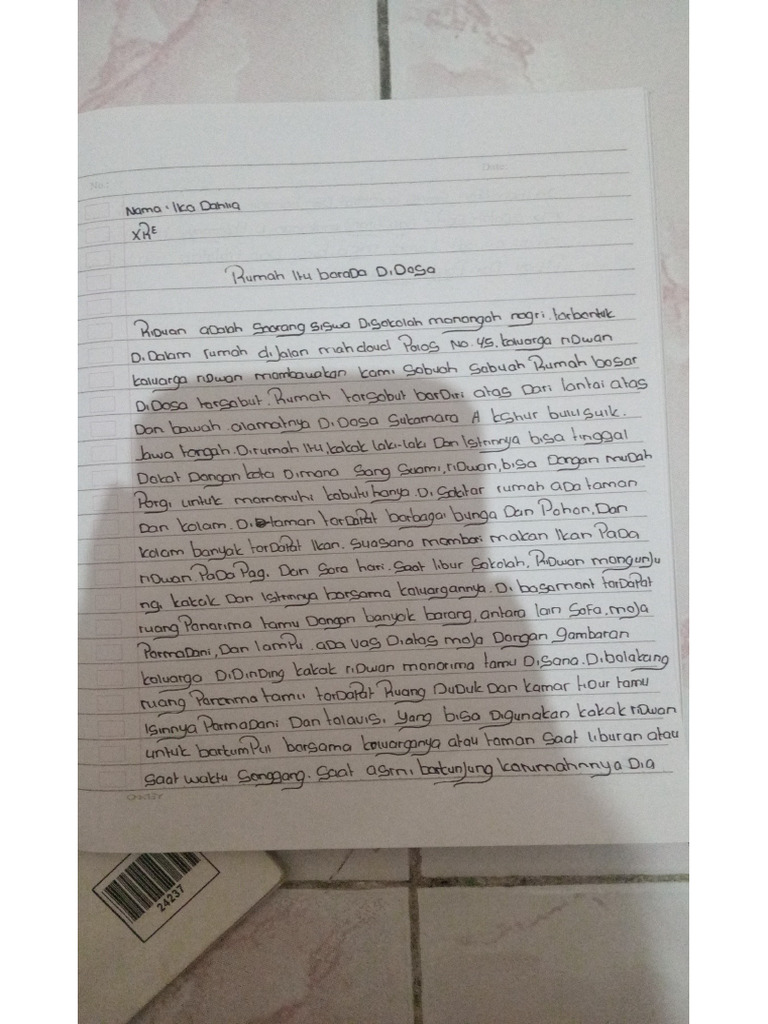 No.:
Date:
Nama : Ika Dahlia
XRE
Rumah Itu berada Di Desa
Riduan adalah Seorang siswa Disekolah menengah negri. terbentuk
Di Dalam rumah di jalan mahdaud Poros No. 45. keluarga riduan
keluarga riduan membawakan kami Sebuah Sebuah Rumah besar
Di Desa tersebut. Rumah tersebut berdiri atas Dari lantai atas
Dan bawah. alamatnya Di Desa Sukamara
Jawa tengah. Dirumah Itu, kakak laki-laki Dan Istrinnya bisa tinggal
Dekat Dengan kota Dimana Sang Suami, riduan, bisa Dengan mudah
Pergi untuk memenuhi kebutuhanya. Di Sekitar rumah ada taman
Dan kolam. Di taman terdapat berbagai bunga Dan Pohon, Dan
kolam banyak terdapat Ikan. Suasana memberi makan Ikan Pada
riduan Pada Pagi Dan Sore hari. Saat libur Sekolah, Riduan mengunju
ngi kakak Dan Istrinnya bersama keluargannya. Di basement terdapat
ruang Penerima tamu Dengan banyak barang, antara lain Sofa, meja
Permadani, Dan lampu. ada vas Diatas meja Dengan gambaran
keluarga Didinding kakak riduan menerima tamu Disana. Dibelakang
ruang Penerima tamu terdapat Ruang Duduk Dan kamar tidur tamu
Isinnya Permadani Dan televisi, yang bisa Digunakan kakak riduan
untuk berkumpul bersama kewarganya atau teman Saat liburan atau
Saat waktu Senggang. Saat asrni, berkunjung kerumahnnya Dia
24237